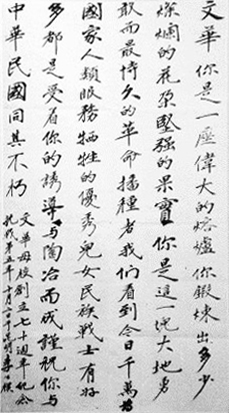 文華 你是一座偉大的熔爐 你鍛煉出多少
燦爛的花朵堅强的果實 你是這一塊大地勇
敢而最持久的革命播種者 我們看到今日千萬為
國家人類服務牺牲的優秀兒女民族戰士有好
多都是受着你的誘導与陶冶而成謹祝你与
中華民國同其不朽
文華母校創立七十週年紀念
抗戰第五年十月二日于昆明